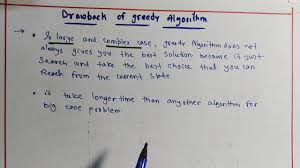 Drawback of greedy Algorithm
→ • In large and complex case, greedy Algorithm does not
always gives you the best solution because it just
search and take the best choice that you can
Reach from the current state
• it take longer time than any other algorithm for
big case problem